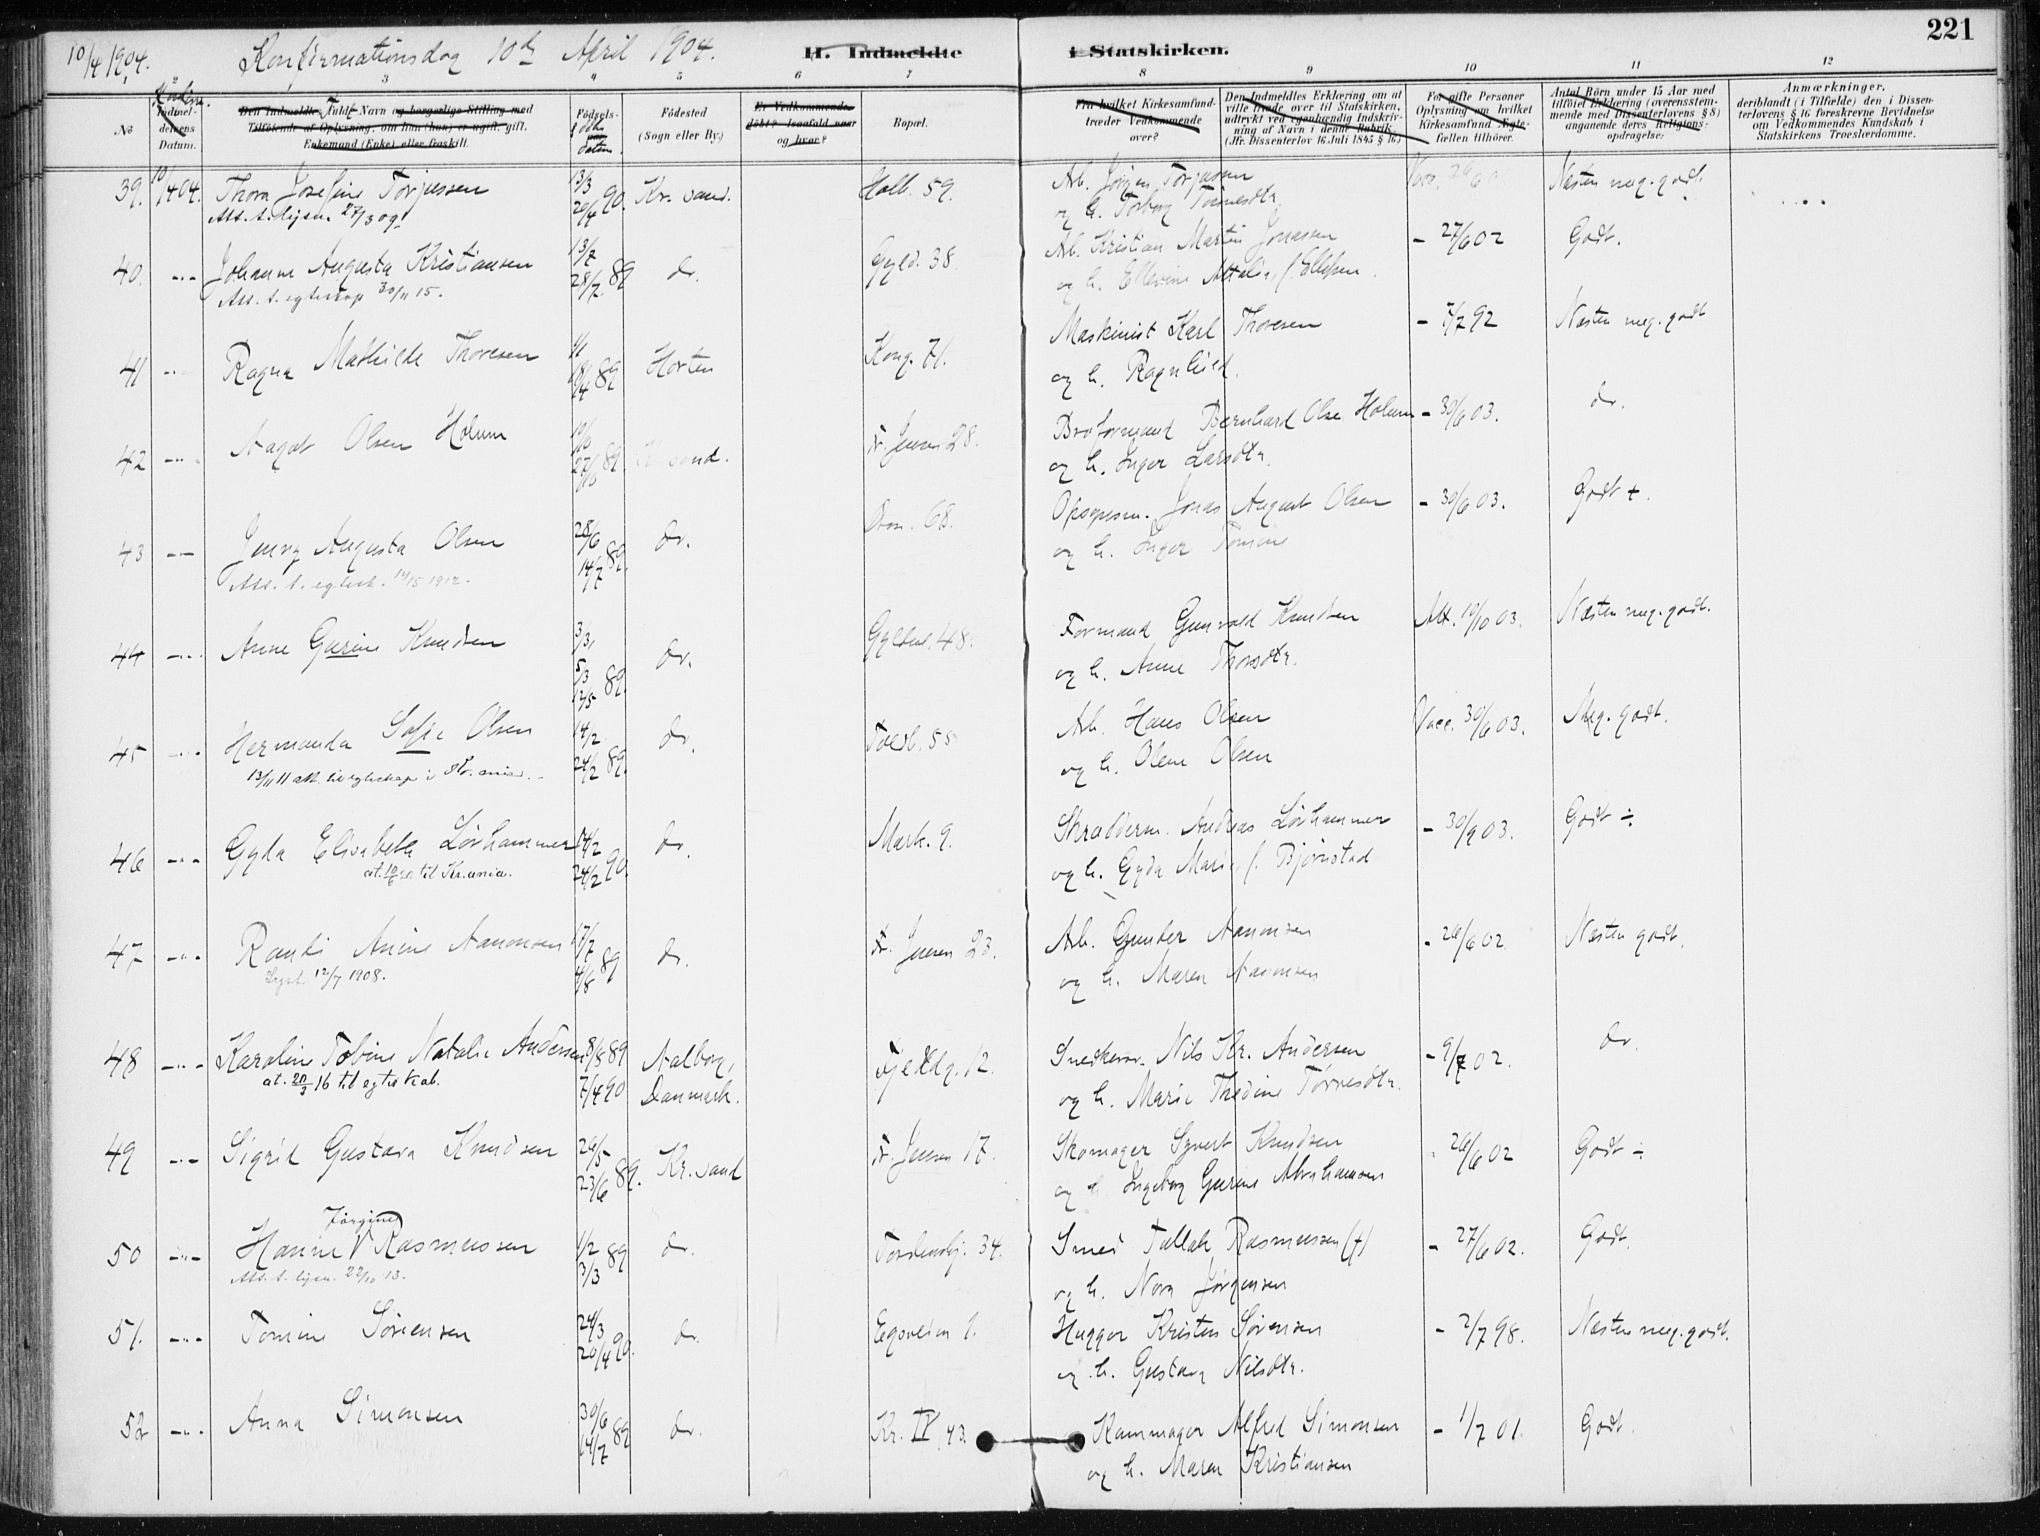 221
10/4 1904.
Konfirmationsdag 10de April 1904.
H. Indmeldte i Statskirken.
3 4 5 6 7 8 9 10 11 12
No
Indmeldelsens Datum.
Den Indmeldtes fulde Navn og borgerlige Stilling med
Tilföiende af Oplysning, om han (hun) er ugift, gift,
Enkemand (Enke) eller fraskilt.
Födsels-
datum.
Födested
(Sogn eller By.)
Er Vedkommende
döbt? Isaafald naar
og hvor?
Bopæl.
Fra hvilket Kirkesamfund
træder Vedkommende
over?
Den Indmeldtes Erklæring om at
ville træde over til Statskirken,
udtrykt ved egenhændig Indskriv-
ning af Navn i denne Rubrik.
(Jfr. Dissenterlov 16 Juli 1845 § 16)
For gifte Personer
Oplysning om hvilket
Kirkesamfund Ægte-
fællen tilhörer.
Antal Börn under 15 Aar med
tilföiet Erklæring (overensstem-
mende med Dissenterlovens § 8)
angaaende deres Religions-
opdragelse.
Anmærkninger,
deriblandt (i Tilfælde) den i Dissen-
terlovens § 16 foreskrevne Bevidnelse
om Vedkommendes Kundskab i
Statskirkens Troeslærdomme.
39. 10/4 04. Thora Josefine Torjussen 13/3 20/4 90. Kr. sand. Holb. 59. Arb. Jörgen Torjussen Næsten meg. godt
Att. t. lysn. 27/3 09. og h. Torborg
40. -"- Johanne Augusta Kristiansen 13/7 28/7 89 do. Gyld. 38 Arb. Kristian Martin Jonassen - 27/6 02 Godt.
Att. t. egteskap 30/11 15. og h. Ellevine f. Ellefsen.
41 -"- Ragna Mathilde Thoresen 89 Horten Kong. 71. Maskinist Karl Thoresen - 7/7 92 Næsten meg. godt
og h. Ragnhild.
42 -"- Aagot Olsen Holum 89 Kr. sand. Jensen 28. Broformand Bernhard Olse Holum - 30/6 03. do.
og h. Inger Larsdtr.
43 -"- Jenny Augusta Olsen 28/6 14/7 89. do. Dron. 68. Opsynsm. Jonas August Olsen - 30/6 03. Godt +.
Att. t. egtesk. 1912. og h. Inger Tomine
44 -"- Anne Gurine Knudsen 3/3 89. do. Gyldenl. 48. Formand Gunvald Knudsen Att. 10/10 03. Næsten meg. godt.
og h. Anne Thorsdtr.
45 -"- Hermanda Sofie Olsen 14/2 24/2 89. do. Toldb. 55 Arb. Hans Olsen Vacc. 30/6 03. Meg. godt.
13/11 11 att. til egteskap i Kr.ania. og h. Olene Olsen
46 -"- Gyda Elisabeth Lörhammer 14/2 24/2 90. do. Mark. 9. Skrædderm. Andreas Lörhammer - 30/9 03. Godt ÷.
at. 10/6 20 til Kr.ania. og h. Gyda Marie f. Bjørnstad
47 -"- Randi Anine Aanonsen 17/7 4/8 89 do. Jensen 23. Arb. Gunder Aanonsen - 26/6 02 Næsten godt.
12/7 1908. og h. Maren Aanonsen
48 -"- Karoline Tobine Natalie Andersen 8/8 89 7/4 90 Aalborg, Danmark. Fjeldg. 12. Snedkersv. Nils Kr. Andersen - 9/7 02. do.
at. 20/3 16 til egteskab. og h. Marie Thedine Tørresdtr.
49 -"- Sigrid Gustava Knudsen 26/5 23/6 89. Kr. sand Jensen 17. Skomager Syvert Knudsen - 26/6 02 Godt ÷
og h. Ingeborg Gurine Abrahamsen
50 -"- Hanne Jörgine Rasmussen 1/2 3/3 89 do. Tordenskj. 34. Smed Tallak Rasmussen (†) - 27/6 02. Godt.
Att. t. lysn. 22/10 13. og h. Nora Jörgensen
51. -"- Tomine Sörensen 24/3 20/4 90. do. Egsveien 1. Hugger Kristen Sörensen - 2/7 98. Næsten meg. godt.
og h. Gustava Nilsdtr.
52 -"- Anna Simonsen 30/6 14/7 89 do. Kr. IV 43. Kammager Alfred Simonsen - 1/7 01. Godt.
og h. Maren Kristiansen